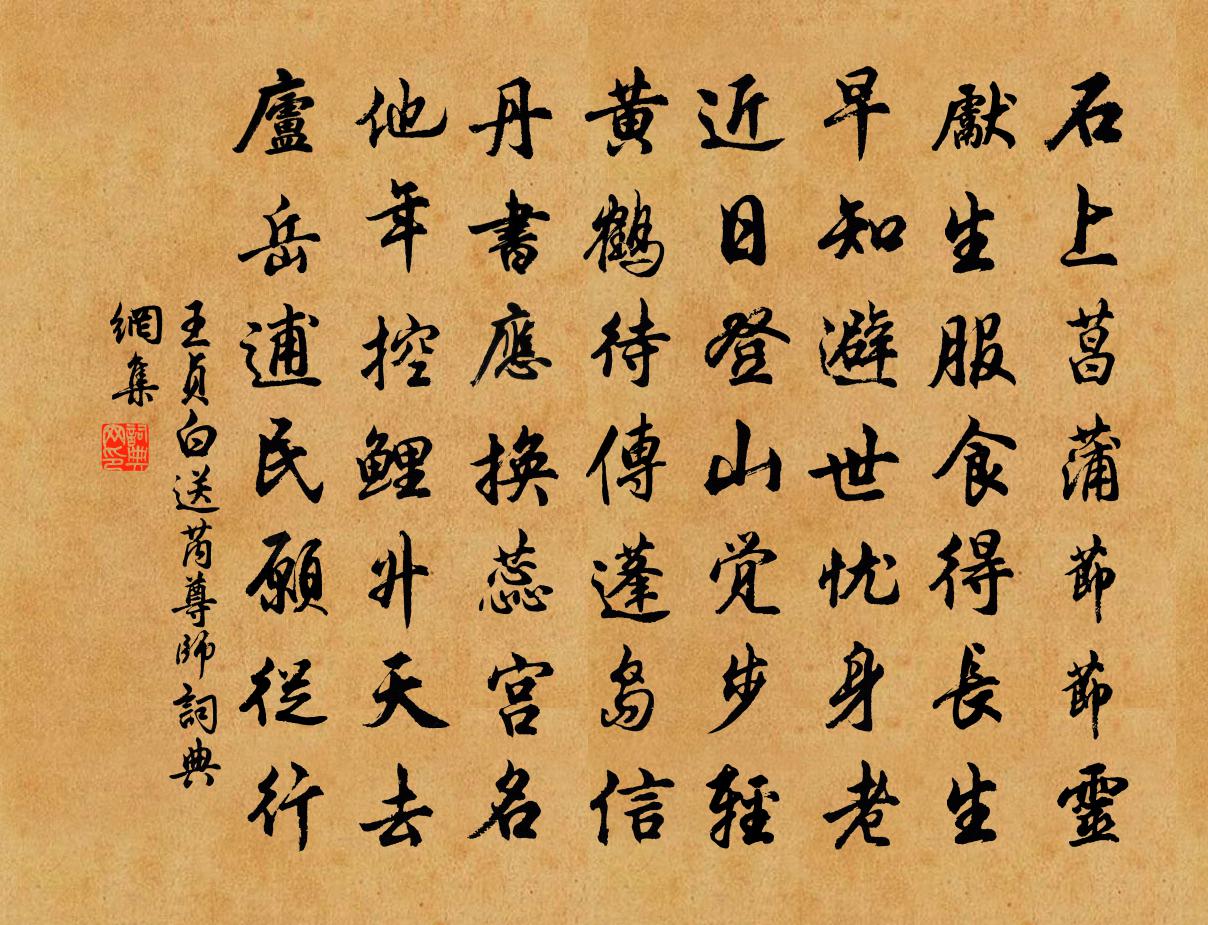 石上菖蒲節節靈
獻生服食得長生
早知避世忧身老
近日登山覺步輕
黃鶴待傳蓬島信
丹書應換蕊宮名
他年控鯉升天去
廬岳逋民願從行
王貞白送芮尊師詞典
網集
詞典
网印